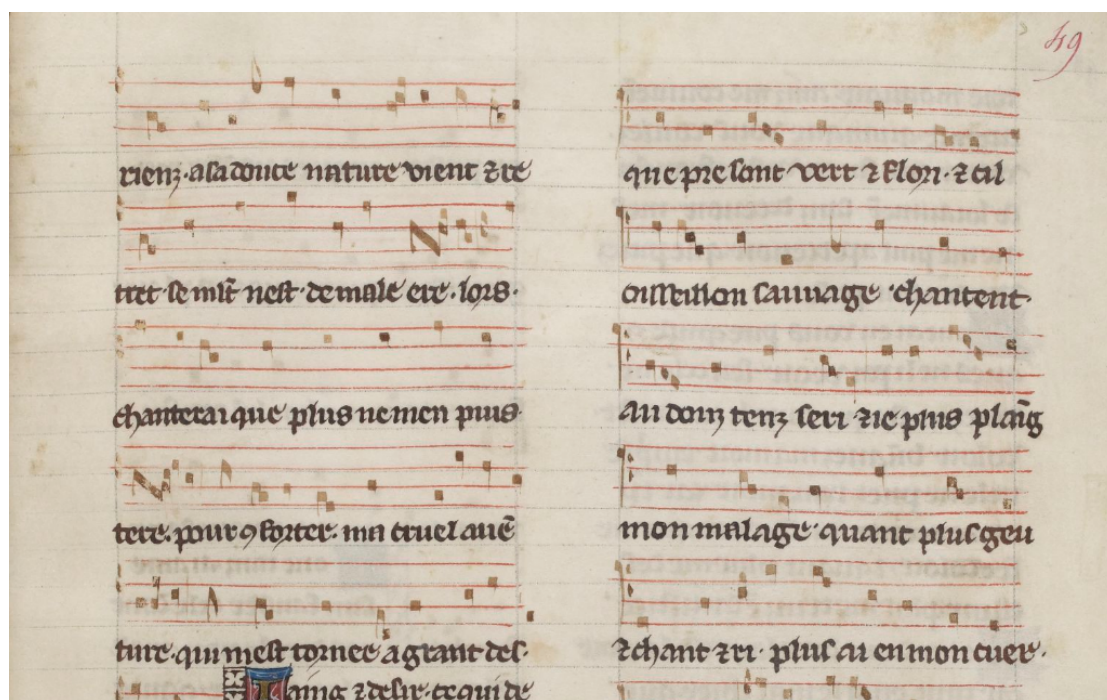 49
rienz · a sa douce nature vient ⁊ re
tret · se mlt nest · de male ere · lors ·
chanterai que plus ne men puis
tere · pour ꝯforter · ma cruel auē
ture · qui mest tornee a grant des ·
⁊ desir · ce qui de
que pre sont vert ⁊ flori · ⁊ cil
oisseillon sauuage · chantent
au douz tenz seri ⁊ ie plus plaīg
mon malage · quant plus geu
⁊ chant ⁊ ri · plus ai en mon cuer ·